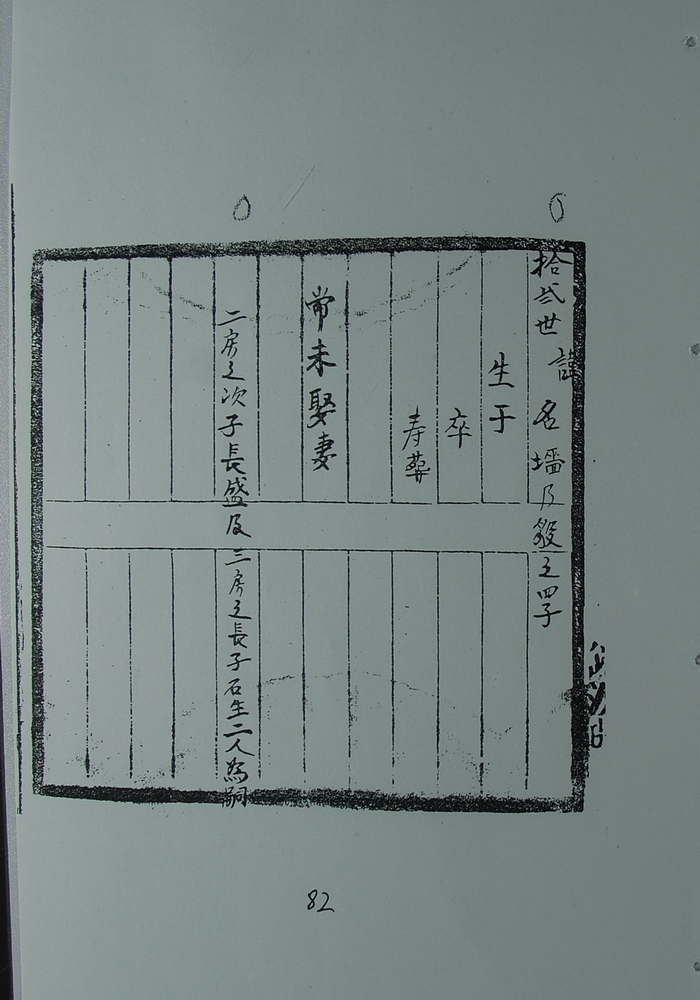 拾弍世 諱 名墦及毅之四子
生于
卒
寿葬
常未娶妻
二房之次子長盛及三房之長子石生二人為嗣
82